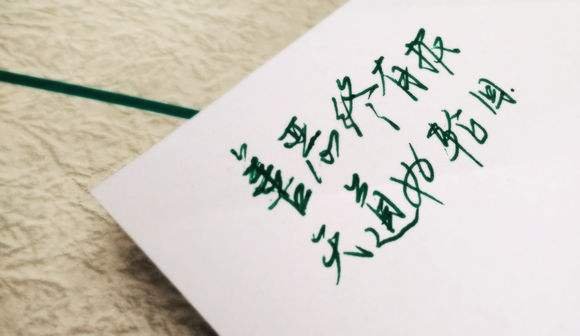 善恶终有报
天道好轮回.